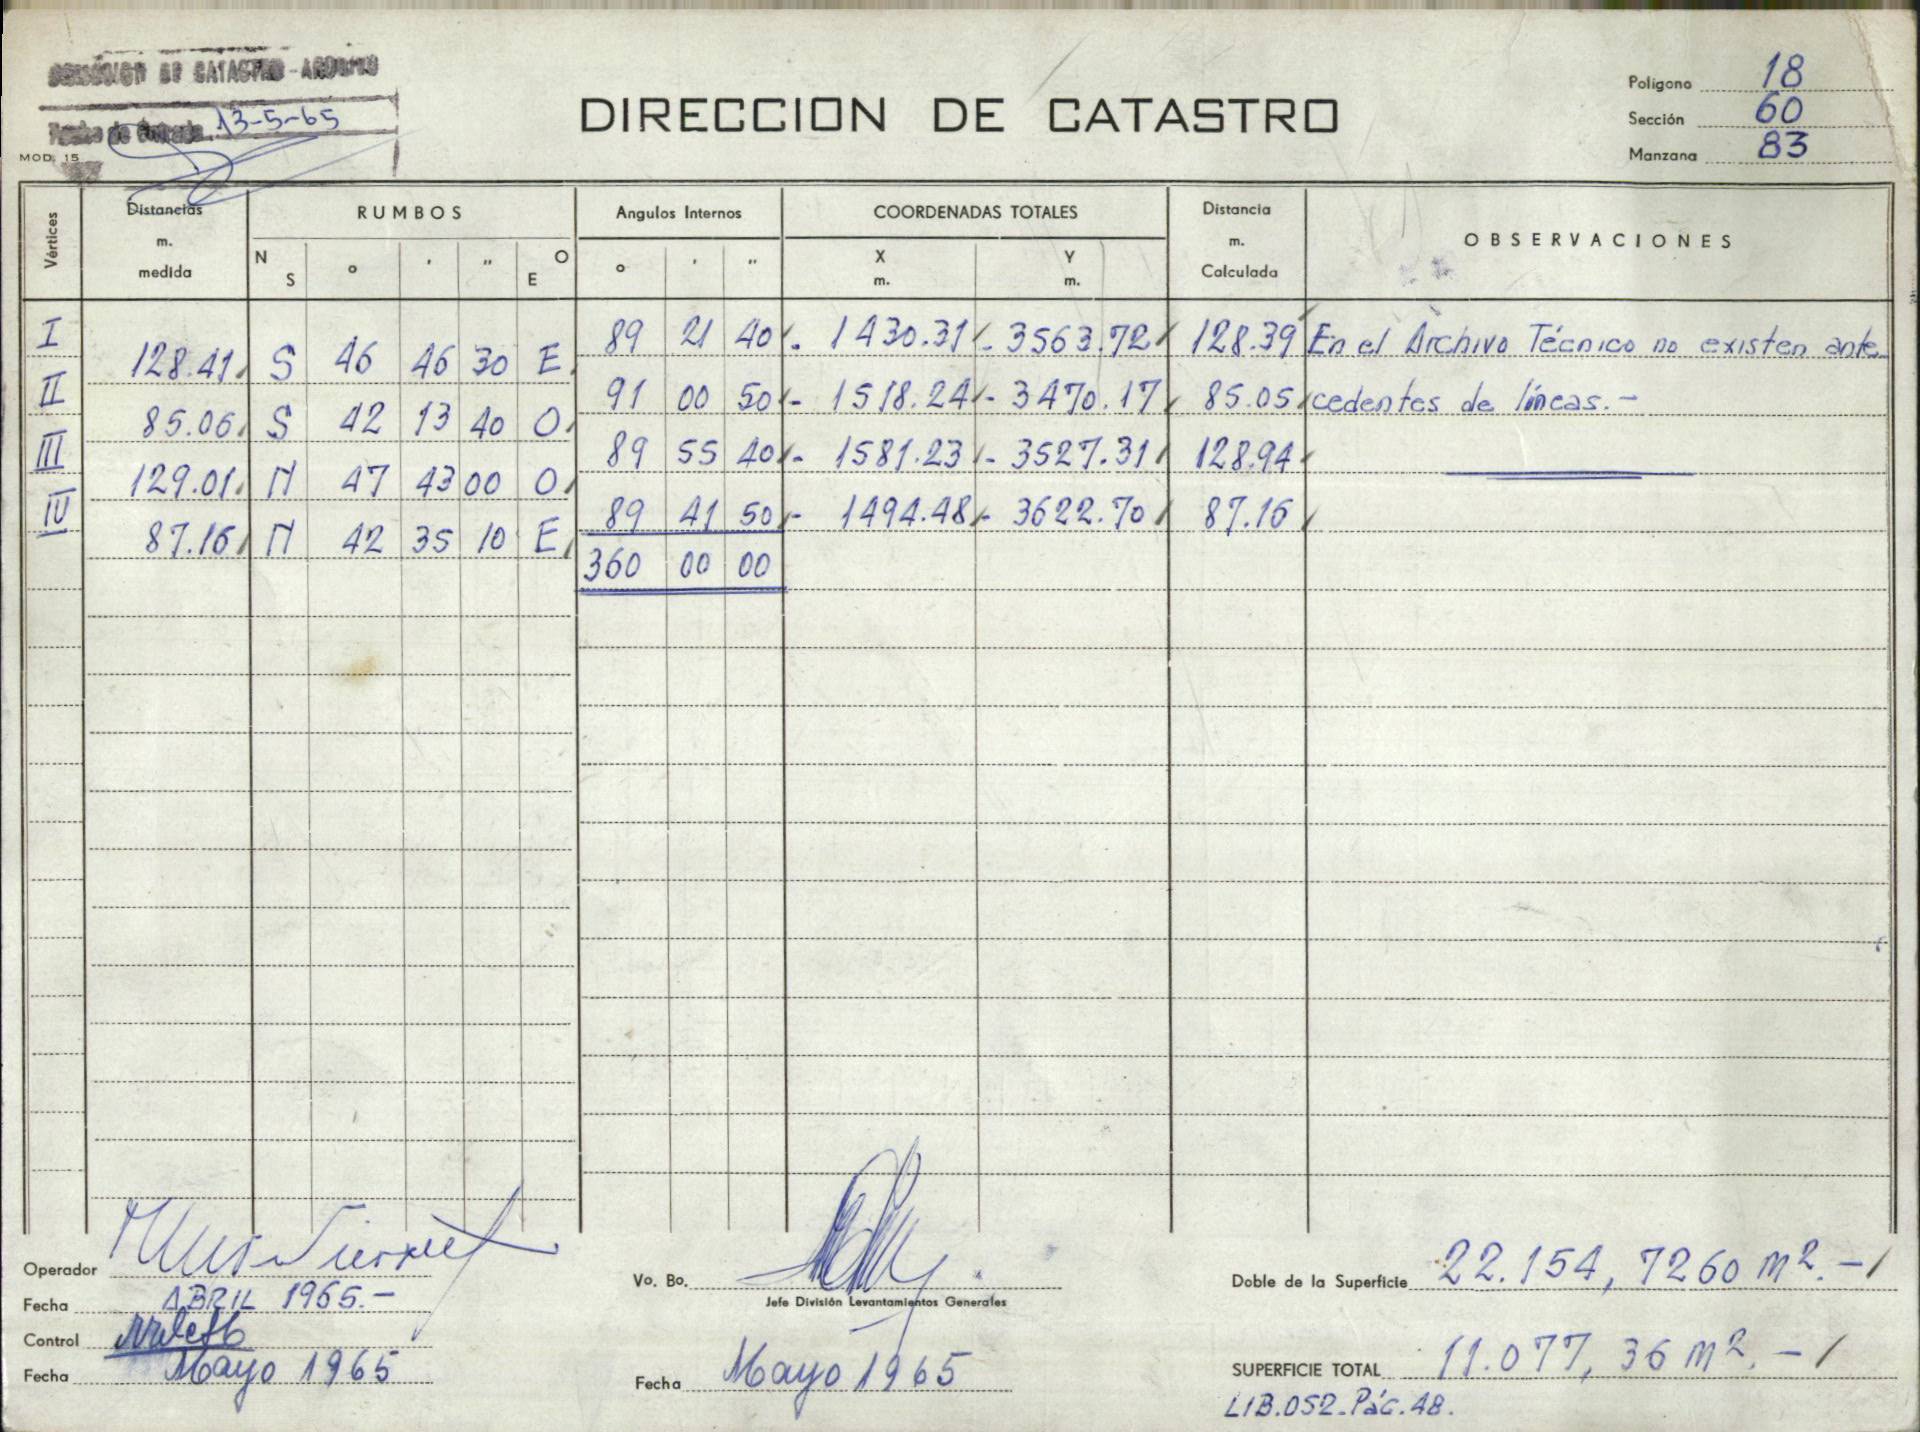 DIVISION DE CATASTRO - ARCHIVO
Fecha de Entrada 13-5-65
MOD. 15
DIRECCION DE CATASTRO
Polígono 18
Sección 60
Manzana 83
Vértices
Distancias m. medida
RUMBOS
N S ° ' " O E
Angulos Internos
° ' "
COORDENADAS TOTALES
X m. Y m.
Distancia m. Calculada
OBSERVACIONES
I 89 21 40 - 1430.31 - 3563.72 128.39 En el Archivo Técnico no existen ante-
128.41 S 46 46 30 E
II 91 00 50 - 1518.24 - 3470.17 85.05 cedentes de líneas.-
85.06 S 42 13 40 O
III 89 55 40 - 1581.23 - 3527.31 128.94
129.01 N 47 43 00 O
IV 89 41 50 - 1494.48 - 3622.70 87.16
87.16 N 42 35 10 E
360 00 00
Operador
Fecha ABRIL 1965.-
Control
Fecha Mayo 1965
Vo. Bo.
Jefe División Levantamientos Generales
Fecha Mayo 1965
Doble de la Superficie 22.154,7260 m2.-
SUPERFICIE TOTAL 11.077,36 m2.-
LIB.052-Pág.48.